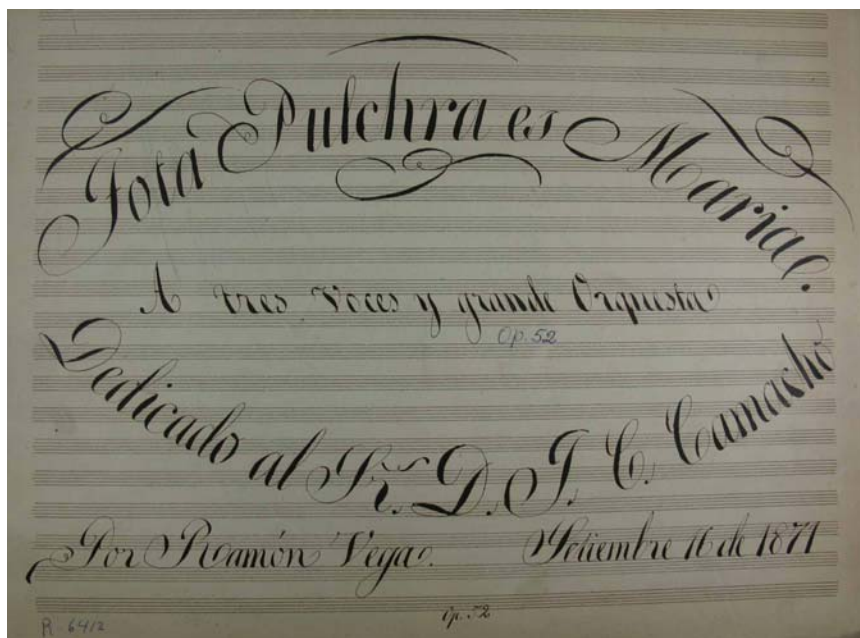 Tota Pulchra es Maria.
A tres Voces y grande Orquesta
Op. 52
Dedicado al Sr. D. J. C. Camacho
Por Ramón Vega. Setiembre 16 de 1871
Op. 52
R. 6412